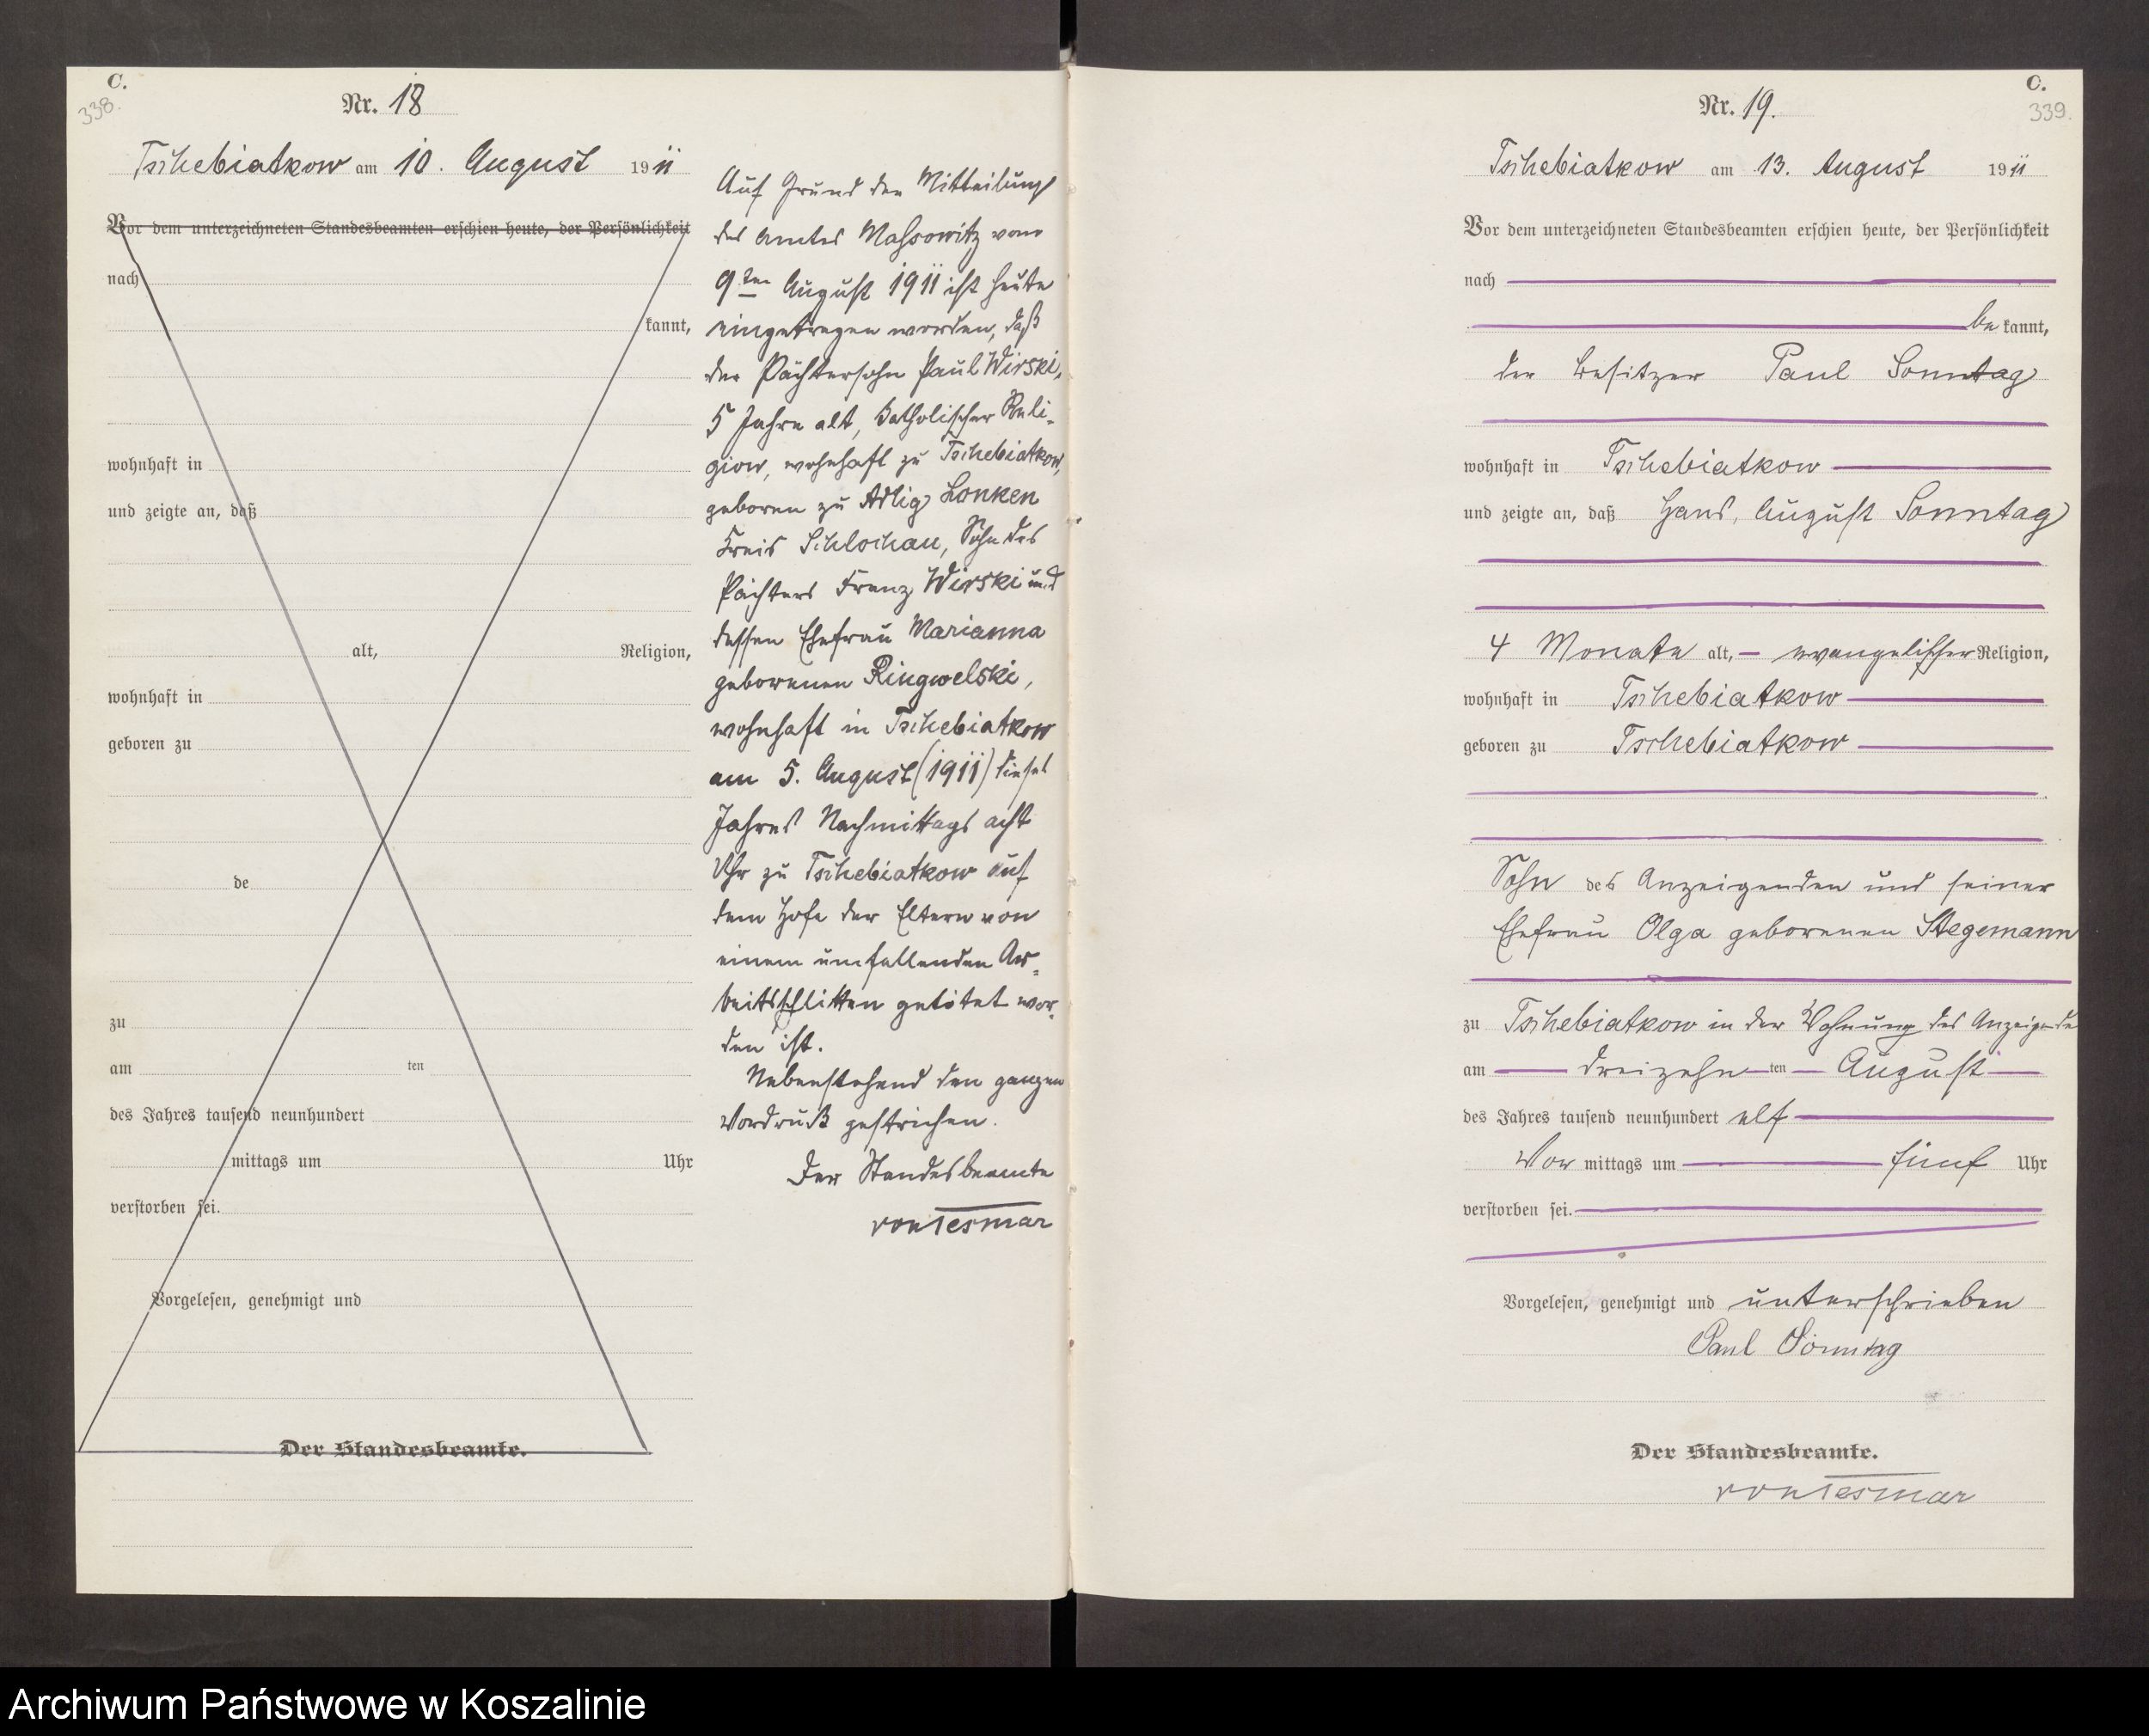 C.
338.
Nr. 18
Tschebiatkow am 10. August 1911
Vor dem unterzeichneten Standesbeamten erschien heute, der Persönlichkeit
nach
kannt,
wohnhaft in
und zeigte an, daß
alt, Religion,
wohnhaft in
geboren zu
de
zu
am ten
des Jahres tausend neunhundert
mittags um Uhr
verstorben sei.
Vorgelesen, genehmigt und
Der Standesbeamte.
Auf Grund der Mitteilung
des Amtes Massowitz vom
9ten August 1911 ist heute
eingetragen worden, daß
der Pächtersohn Paul Wirski,
5 Jahre alt, katholischer Reli-
gion, wohnhaft zu Tschebiatkow,
geboren zu Adlig Lonken
Kreis Schlochau, Sohn des
Pächters Franz Wirski und
dessen Ehefrau Marianna
geborenen Ringwelski,
wohnhaft in Tschebiatkow
am 5. August (1911) dieses
Jahres Nachmittags acht
Uhr zu Tschebiatkow auf
dem Hofe der Eltern von
einem umfallenden Ar-
beitsschlitten getötet wor-
den ist.
Nebenstehend den ganzen
Vordruck gestrichen.
Der Standesbeamte
von Tesmar
C.
339.
Nr. 19.
Tschebiatkow am 13. August 1911
Vor dem unterzeichneten Standesbeamten erschien heute, der Persönlichkeit
nach
be kannt,
der Besitzer Paul Sonntag
wohnhaft in Tschebiatkow
und zeigte an, daß Hans, August Sonntag
4 Monate alt, evangelischer Religion,
wohnhaft in Tschebiatkow
geboren zu Tschebiatkow
Sohn des Anzeigenden und seiner
Ehefrau Olga geborenen Stegemann
zu Tschebiatkow in der Wohnung des Anzeigende
am dreizehn ten August
des Jahres tausend neunhundert elf
Vor mittags um fünf Uhr
verstorben sei.
Vorgelesen, genehmigt und unterschrieben
Paul Sonntag
Der Standesbeamte.
von Tesmar
Archiwum Państwowe w Koszalinie